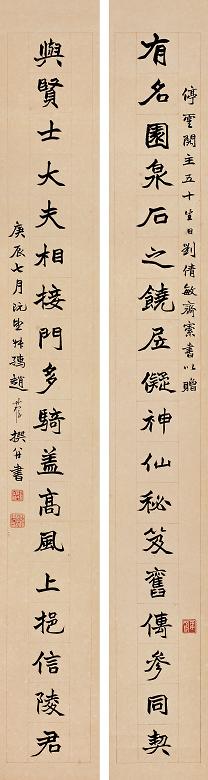 停雲閣主五十生日劉倩敏齋索書以贈
有名園泉石之饒居儗神仙秘笈舊傳參同契
與賢士大夫相接門多騎盖高風上挹信陵君
庚辰七月沅叔趙撰并書